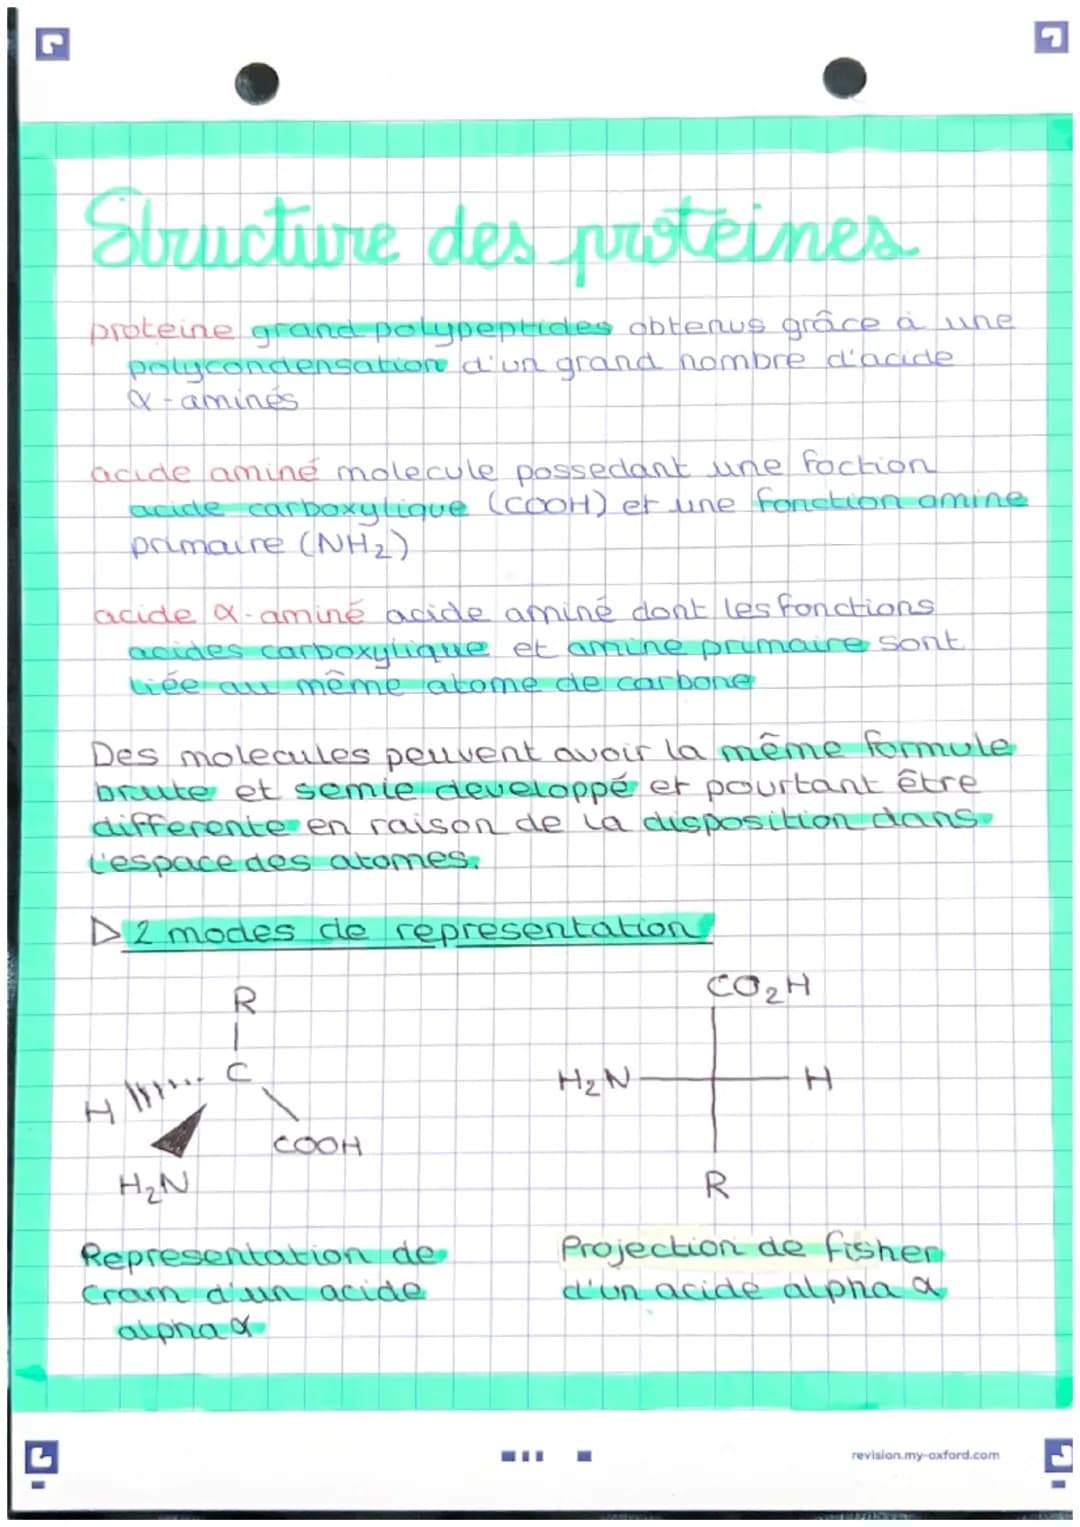 Structure des proteines
proteine grand polypeptides obtenus grâce à une
polycondensation d'un grand nombre d'acide
α-aminés
acide aminé molecule possedant une foction
acide carboxylique (COOH) et une fonction amine
primaire (NH2)
acide α-aminé acide aminé dont les fonctions
acides carboxylique et amine primaire sont
liée au même atome de carbone
Des molecules peuvent avoir la même formule
brute et semie developpé et pourtant être
differente en raison de la disposition dans
l'espace des atomes.
▷ 2 modes de representation
R
C
H
COOH
H2N
CO2H
H2N
H
R
Representation de
Cram d'un acide
alpha α
Projection de fisher
d'un acide alpha α
revision.my-oxford.com